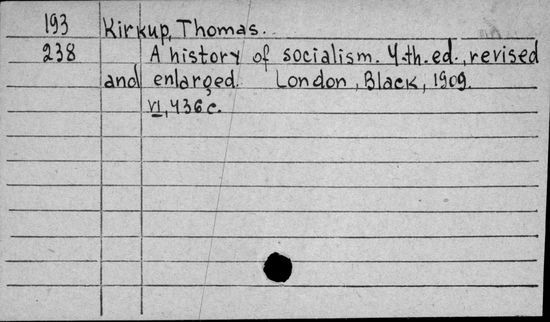 193 Kirkup, Thomas.
238 A history of socialism. 4-th. ed., revised
and enlarged. London, Black, 1909.
VI, 436 c.